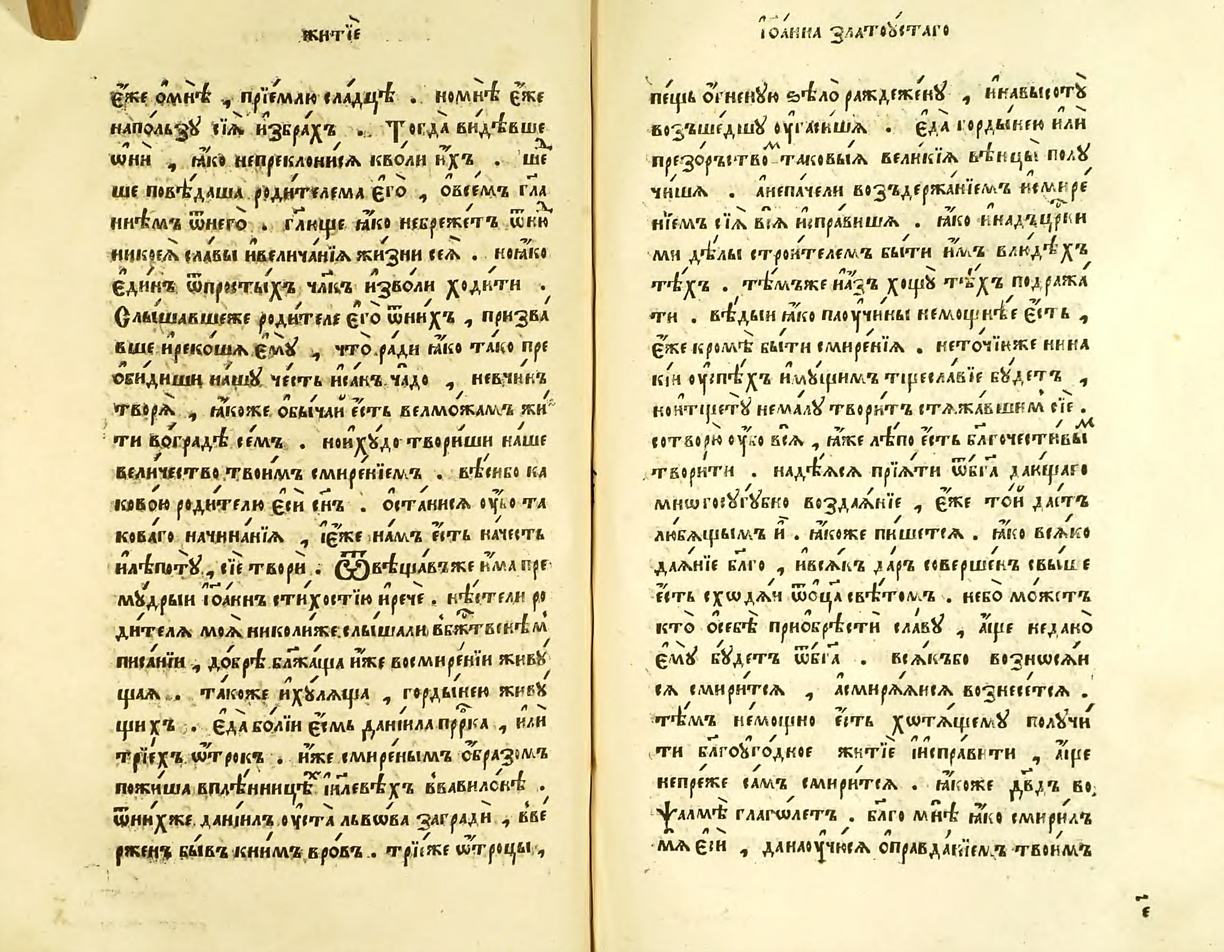 житїѐ
є҆́же ѡ҆мнѣ̀ , прїе́млю сла́дцѣ . номнѣ̀ є҆́же
напо́льзꙋ сїѧ̀ и҆збра́хъ . Тогда̀ ви́дѣвше
ѡ҆нѝ , ꙗ҆́ко непреклони́сѧ кво́ли и҆́хъ . ше́д
ше повѣ́даша роди́телема є҆гѡ̀ , ѡ҆все́мъ гл҃а
ннѣмъ ѿнегѡ̀ . гл҃юще ꙗ҆́ко небреже́тъ ѿни́д
никоеѧ̀ сла́вы и҆велича́нїѧ жи́зни сеѧ̀ . ноꙗ҆́ко
є҆ди́нъ ѿпросты́хъ чл҃къ и҆зво́ли ходи́ти .
Слы́шавшеже роди́теле є҆гѡ̀ ѿни́хъ , призва́
вше и҆реко́шѧ є҆мꙋ̀ , что̀ ра́ди ꙗ҆́ко та́ко пре
ѻ҆би́диши на́шꙋ че́сть и҆са́нъ ча́до , невчи́нъ
творѧ̀ , ꙗ҆́коже ѻ҆бы́чай є҆́сть велмо́жамъ жи́
ти во́градѣ се́мъ . нои҆хꙋ́до твори́ши на́ше
вели́чество твои́мъ смире́нїемъ . вѣ́сибо ка
ково́ю роди́телю є҆сѝ сн҃ъ . ѻ҆ста́нисѧ ᲂу҆́бо та
кова́го начина́нїѧ , ї҆є҆́же на́мъ є҆́сть на́честь
и҆лѣ́потꙋ , сїѐ творѝ . Ѿвѣща́въже и҆́ма пре
мꙋ́дрыи ї҆ѻа́ннъ сти́хостїю и҆речѐ . нѣ́стели ро
ди́телѧ моѧ̀ николи́же слы́шали вбж҃́твенѣм
писа́нїи , до́брѣ бл҃жа́ща и҆̀же восмире́нїи живꙋ́
щаѧ . та́коже и҆хꙋ́лѧща , горды́нею живꙋ́
щихъ . є҆да̀ бо́лїи є҆́смь данїи́ла прⷪ҇ро́ка , и҆лѝ
трїе́хъ ѻ҆́трокъ . и҆̀же смире́нымъ ѻ҆́бразомъ
пожи́ша вплѣ́нницѣⷯ і҆и҃левѣхъ ввавило́нѣ .
ѿни́хже данїи́лъ ᲂу҆ста̀ льво́ва заградѝ , вве́
рженъ бы́въ кни́мъ вро́въ . трїе́же ѻ҆́троцы ,
ї҆ѻа́нна златоᲂу́стаго
пе́щь ѻ҆́гненꙋю ѕѣло̀ раждеже́нꙋ , и҆навысотꙋ̀
возше́дшꙋ ᲂу҆гаси́шѧ . є҆да̀ горды́нею и҆лѝ
презо́рьствоⷨ таковы́ѧ вели́кїѧ вѣнцы̀ полꙋ
чи́шѧ . а҆непа́чели воздержа́нїемъ и҆смире́
нїемъ сїѧ̀ всѧ̀ и҆спра́вишѧ . ꙗ҆́ко и҆на́дъцрⷭ҇ки
ми дѣ́лы строи́телемъ бы́ти и҆̀мъ влюдѣхъ
тѣ́хъ . тѣ́мъже и҆а҆́зъ хощꙋ̀ тѣ́хъ подража́
ти . вѣ́дыи ꙗ҆́ко паᲂу҆чи́ны немощнѣ́е є҆́сть ,
є҆́же кромѣ̀ бы́ти смире́нїѧ . неточї́юже ника
кі́и ᲂу҆спѣ́хъ и҆мꙋ́щимъ тщесла́вїе бꙋ́детъ ,
нои҆тщетꙋ̀ нема́лꙋ твори́тъ стѧжа́вшим сїѐ .
сотворю̀ ᲂу҆́бо всѧ̀ , ꙗ҆́же лѣ́по є҆́сть бл҃гочести́выⷨ
твори́ти . надѣ́ѧсѧ прїѧ́ти ѿбг҃а даю́щаго
мно́госꙋгꙋ́бно воздаѧ́нїе , є҆́же то́й да́стъ
лю́бѧщымъ и҆̀ . ꙗ҆́коже пи́шетсѧ . ꙗ҆́ко всѧ́ко
даѧ́нїе бл҃го , и҆всѧ́къ да́ръ соверше́нъ свы́ше
є҆́сть сходѧ́и ѿѻц҃а̀ свѣ́томъ . небо̀ мо́жетъ
кто̀ ѻ҆себѣ̀ приѡбрѣ́сти сла́вꙋ , а҆́ще недано̀
є҆мꙋ̀ бꙋ́детъ ѿбг҃а . всѧ́къбо возносѧ́и
сѧ смири́тсѧ , а҆смирѧ́ѧисѧ вознесе́тсѧ .
тѣ́мъ немо́щно є҆́сть хотѧ́щемꙋ полꙋчи́
ти бл҃гоᲂуго́дное житїѐ и҆и҆спра́вити , а҆́ще
непре́же са́мъ смири́тсѧ . ꙗ҆́коже дв҃дъ во
ѱалмѣ̀ глаго́летъ . бл҃го мнѣ̀ ꙗ҆́ко смири́лъ
мѧ̀ є҆сѝ , данаᲂу҆чю́сѧ ѻ҆правда́нїемъ твои́мъ
є҃